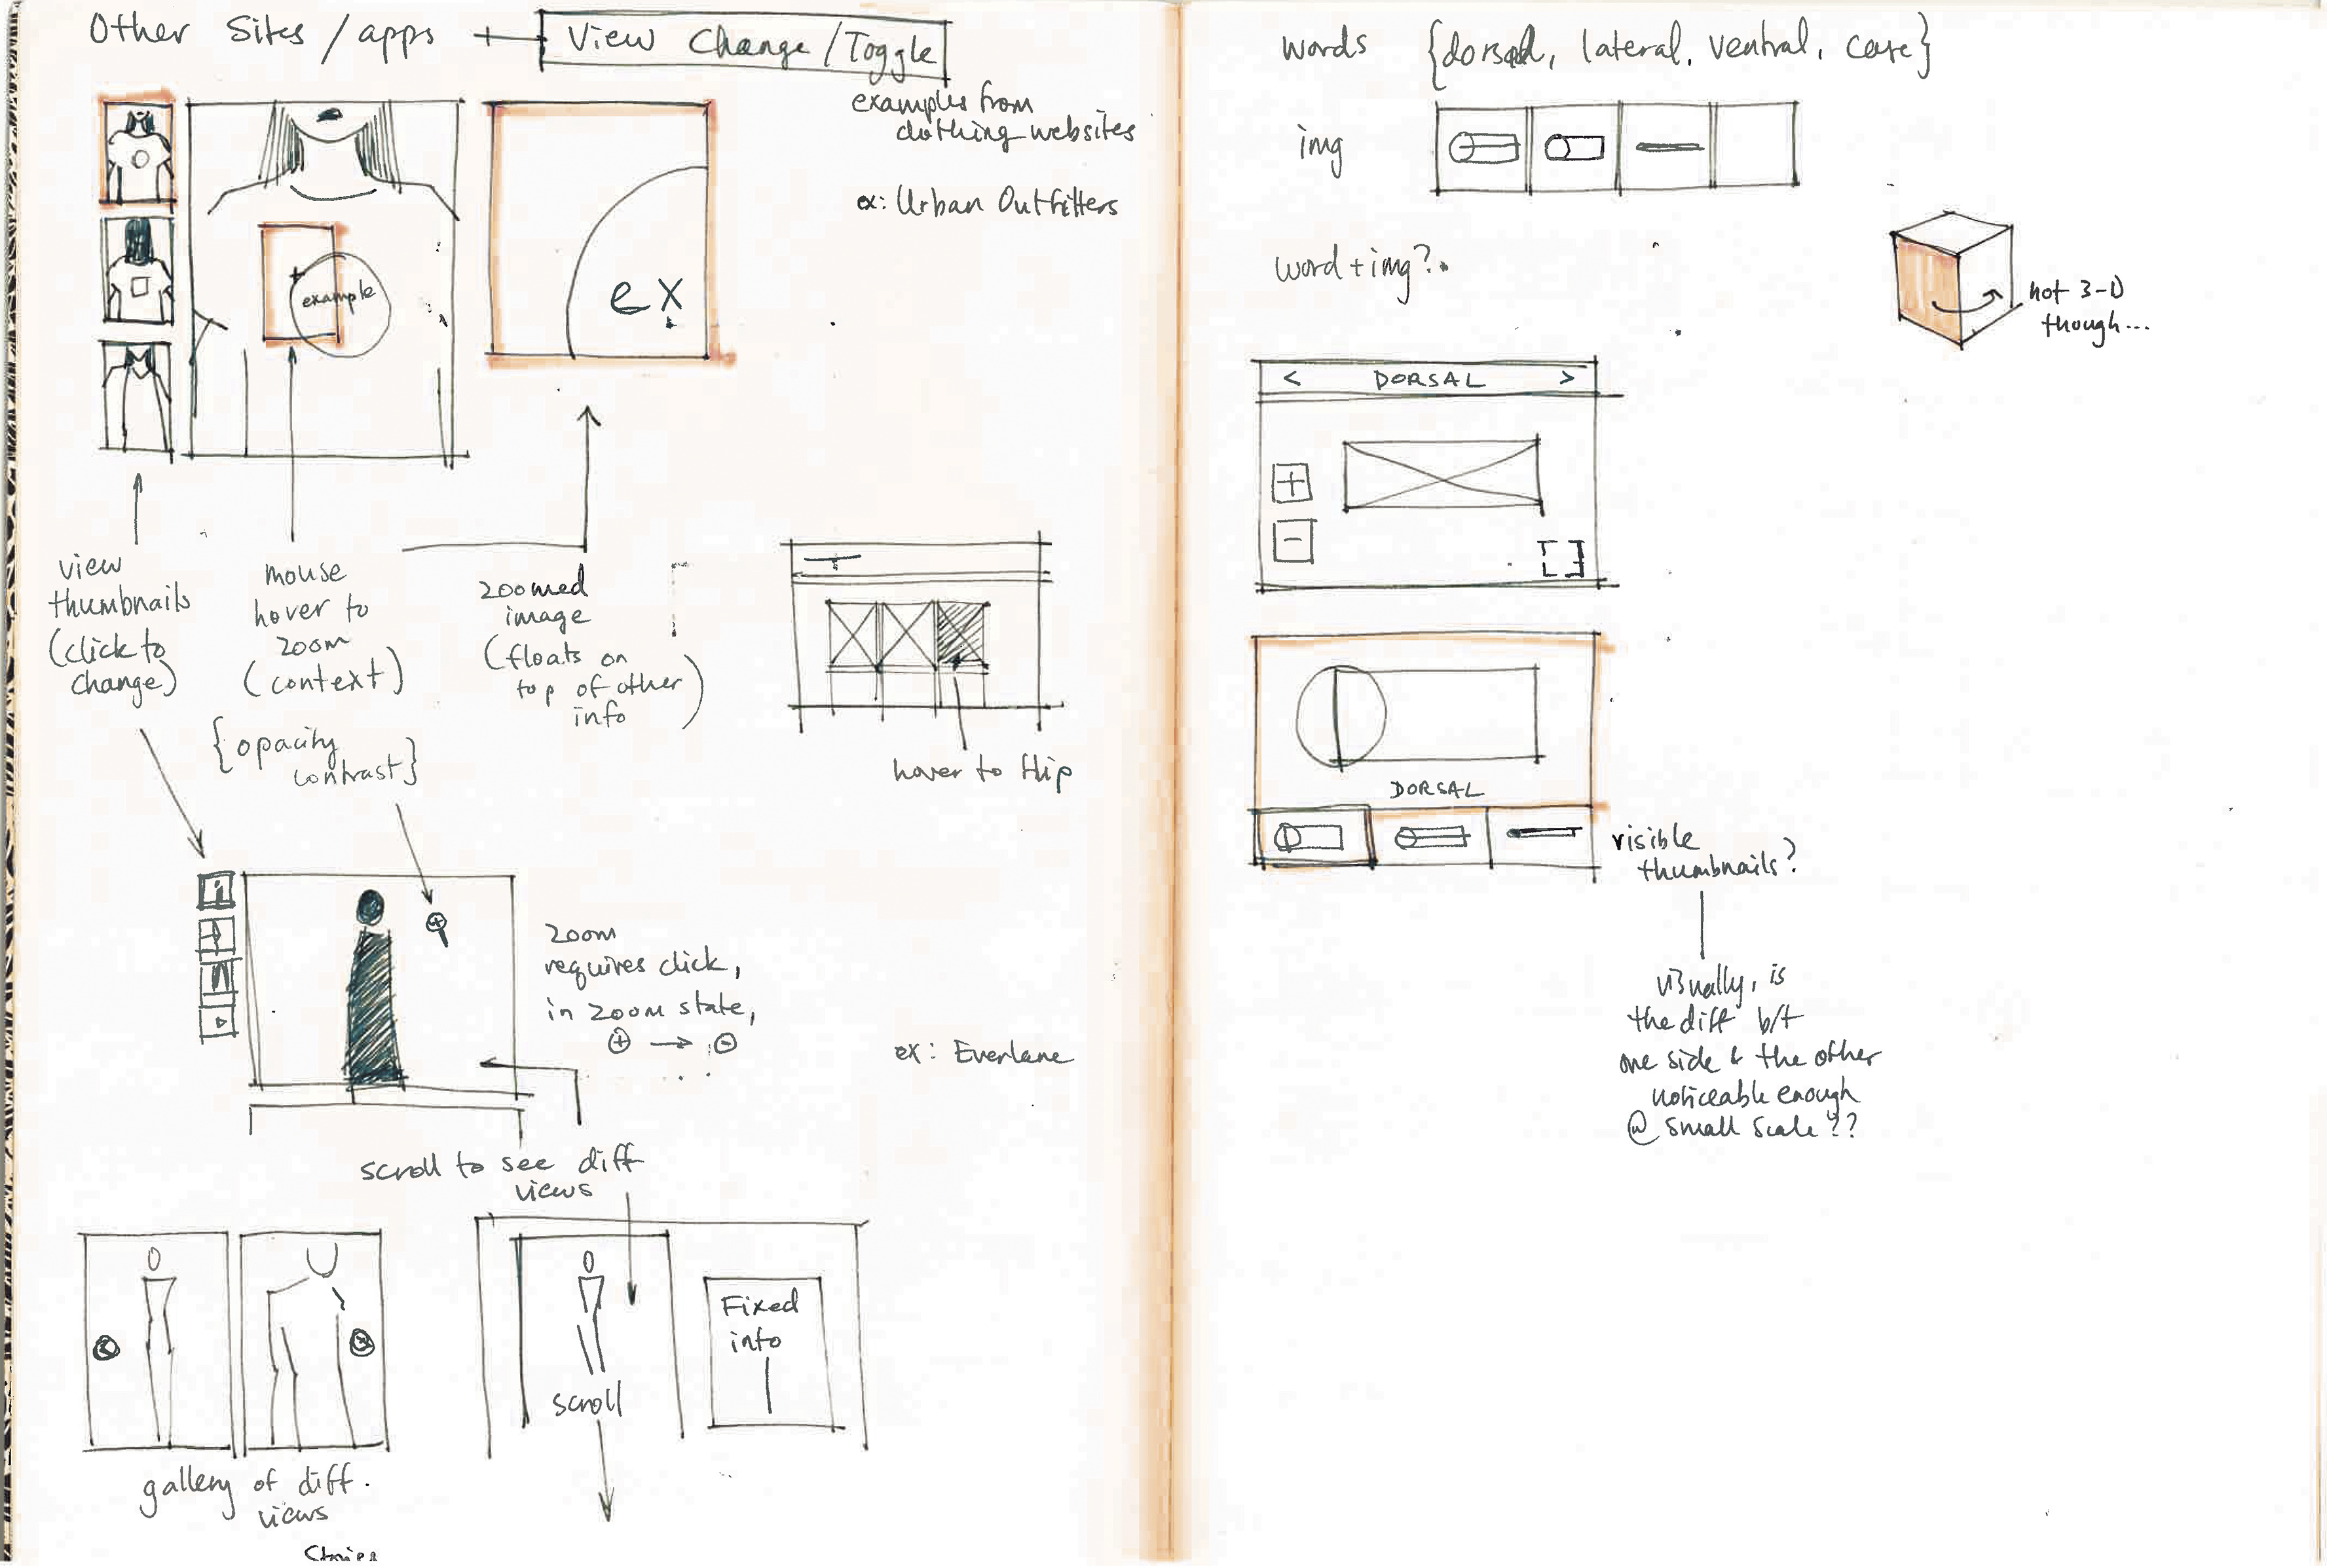 Other Sites / apps + View Change / Toggle
examples from
clothing websites
ex: Urban Outfitters
example
ex
view
thumbnails
(click to
change)
mouse
hover to
zoom
(context)
{opacity
contrast}
zoomed
image
(floats on
top of other
info)
hover to flip
zoom
requires click,
in zoom state,
⊕ → ⊖
ex: Everlane
scroll to see diff
views
gallery of diff.
views
scroll
Fixed
info
words {dorsal, lateral, ventral, case}
img
word + img?
not 3-D
though...
< DORSAL >
+
-
DORSAL
visible
thumbnails?
visually, is
the diff b/t
one side & the other
noticeable enough
@ small scale??